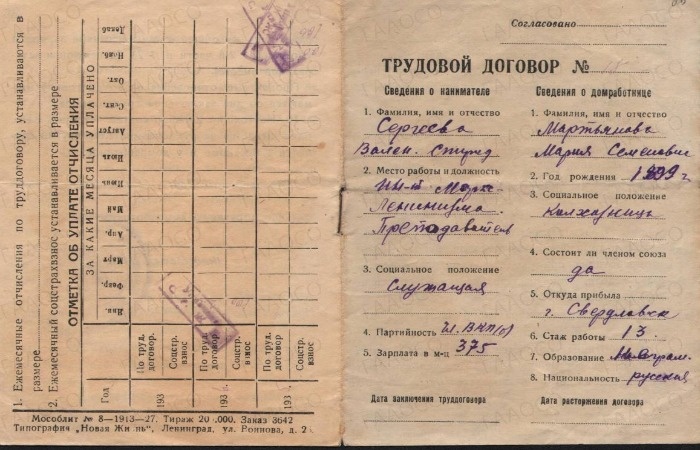 1. Ежемесячные отчисления по труддоговору, устанавливаются в
размере
2. Ежемесячный соцстрахвзнос устанавливается в размере
ОТМЕТКА ОБ УПЛАТЕ ОТЧИСЛЕНИЯ
ЗА КАКИЕ МЕСЯЦА УПЛАЧЕНО
Год
Янв.
Февр.
Март
Апр.
Май
Июнь
Июль
Август
Сент.
Окт.
Нояб.
Декаб.
193
По труд. договор.
Соцстр. взнос
193
По труд. договор.
Соцстр. взнос
193
По труд. договор.
Соцстр. взнос
Мособлит № 8—1913—27. Тираж 20 .000. Заказ 3642
Типографич „Новая Жи нь“, Ленинград, ул. Роннова, д. 2
Согласовано
ТРУДОВОЙ ДОГОВОР №
Сведения о нанимателе
1. Фамилия, имя и отчество
Сергеева
Вален.
2. Место работы и должность
Ин-т Маркс
Ленинизма
Преподаватель
3. Социальное положение
Служащая
4. Партийность Чл. ВКП(б)
5. Зарплата в м-ц 375
Дата заключения труддоговора
Сведения о домработнице
1. Фамилия, имя и отчество
Мартьянова
Мария Семеновна
2. Год рождения 1899 г
3. Социальное положение
Колхозница
4. Состоит ли членом союза
да
5. Откуда прибыла
г. Свердловск
6. Стаж работы 13
7. Образование Малограм.
8. Национальность русская
Дата расторжения договора